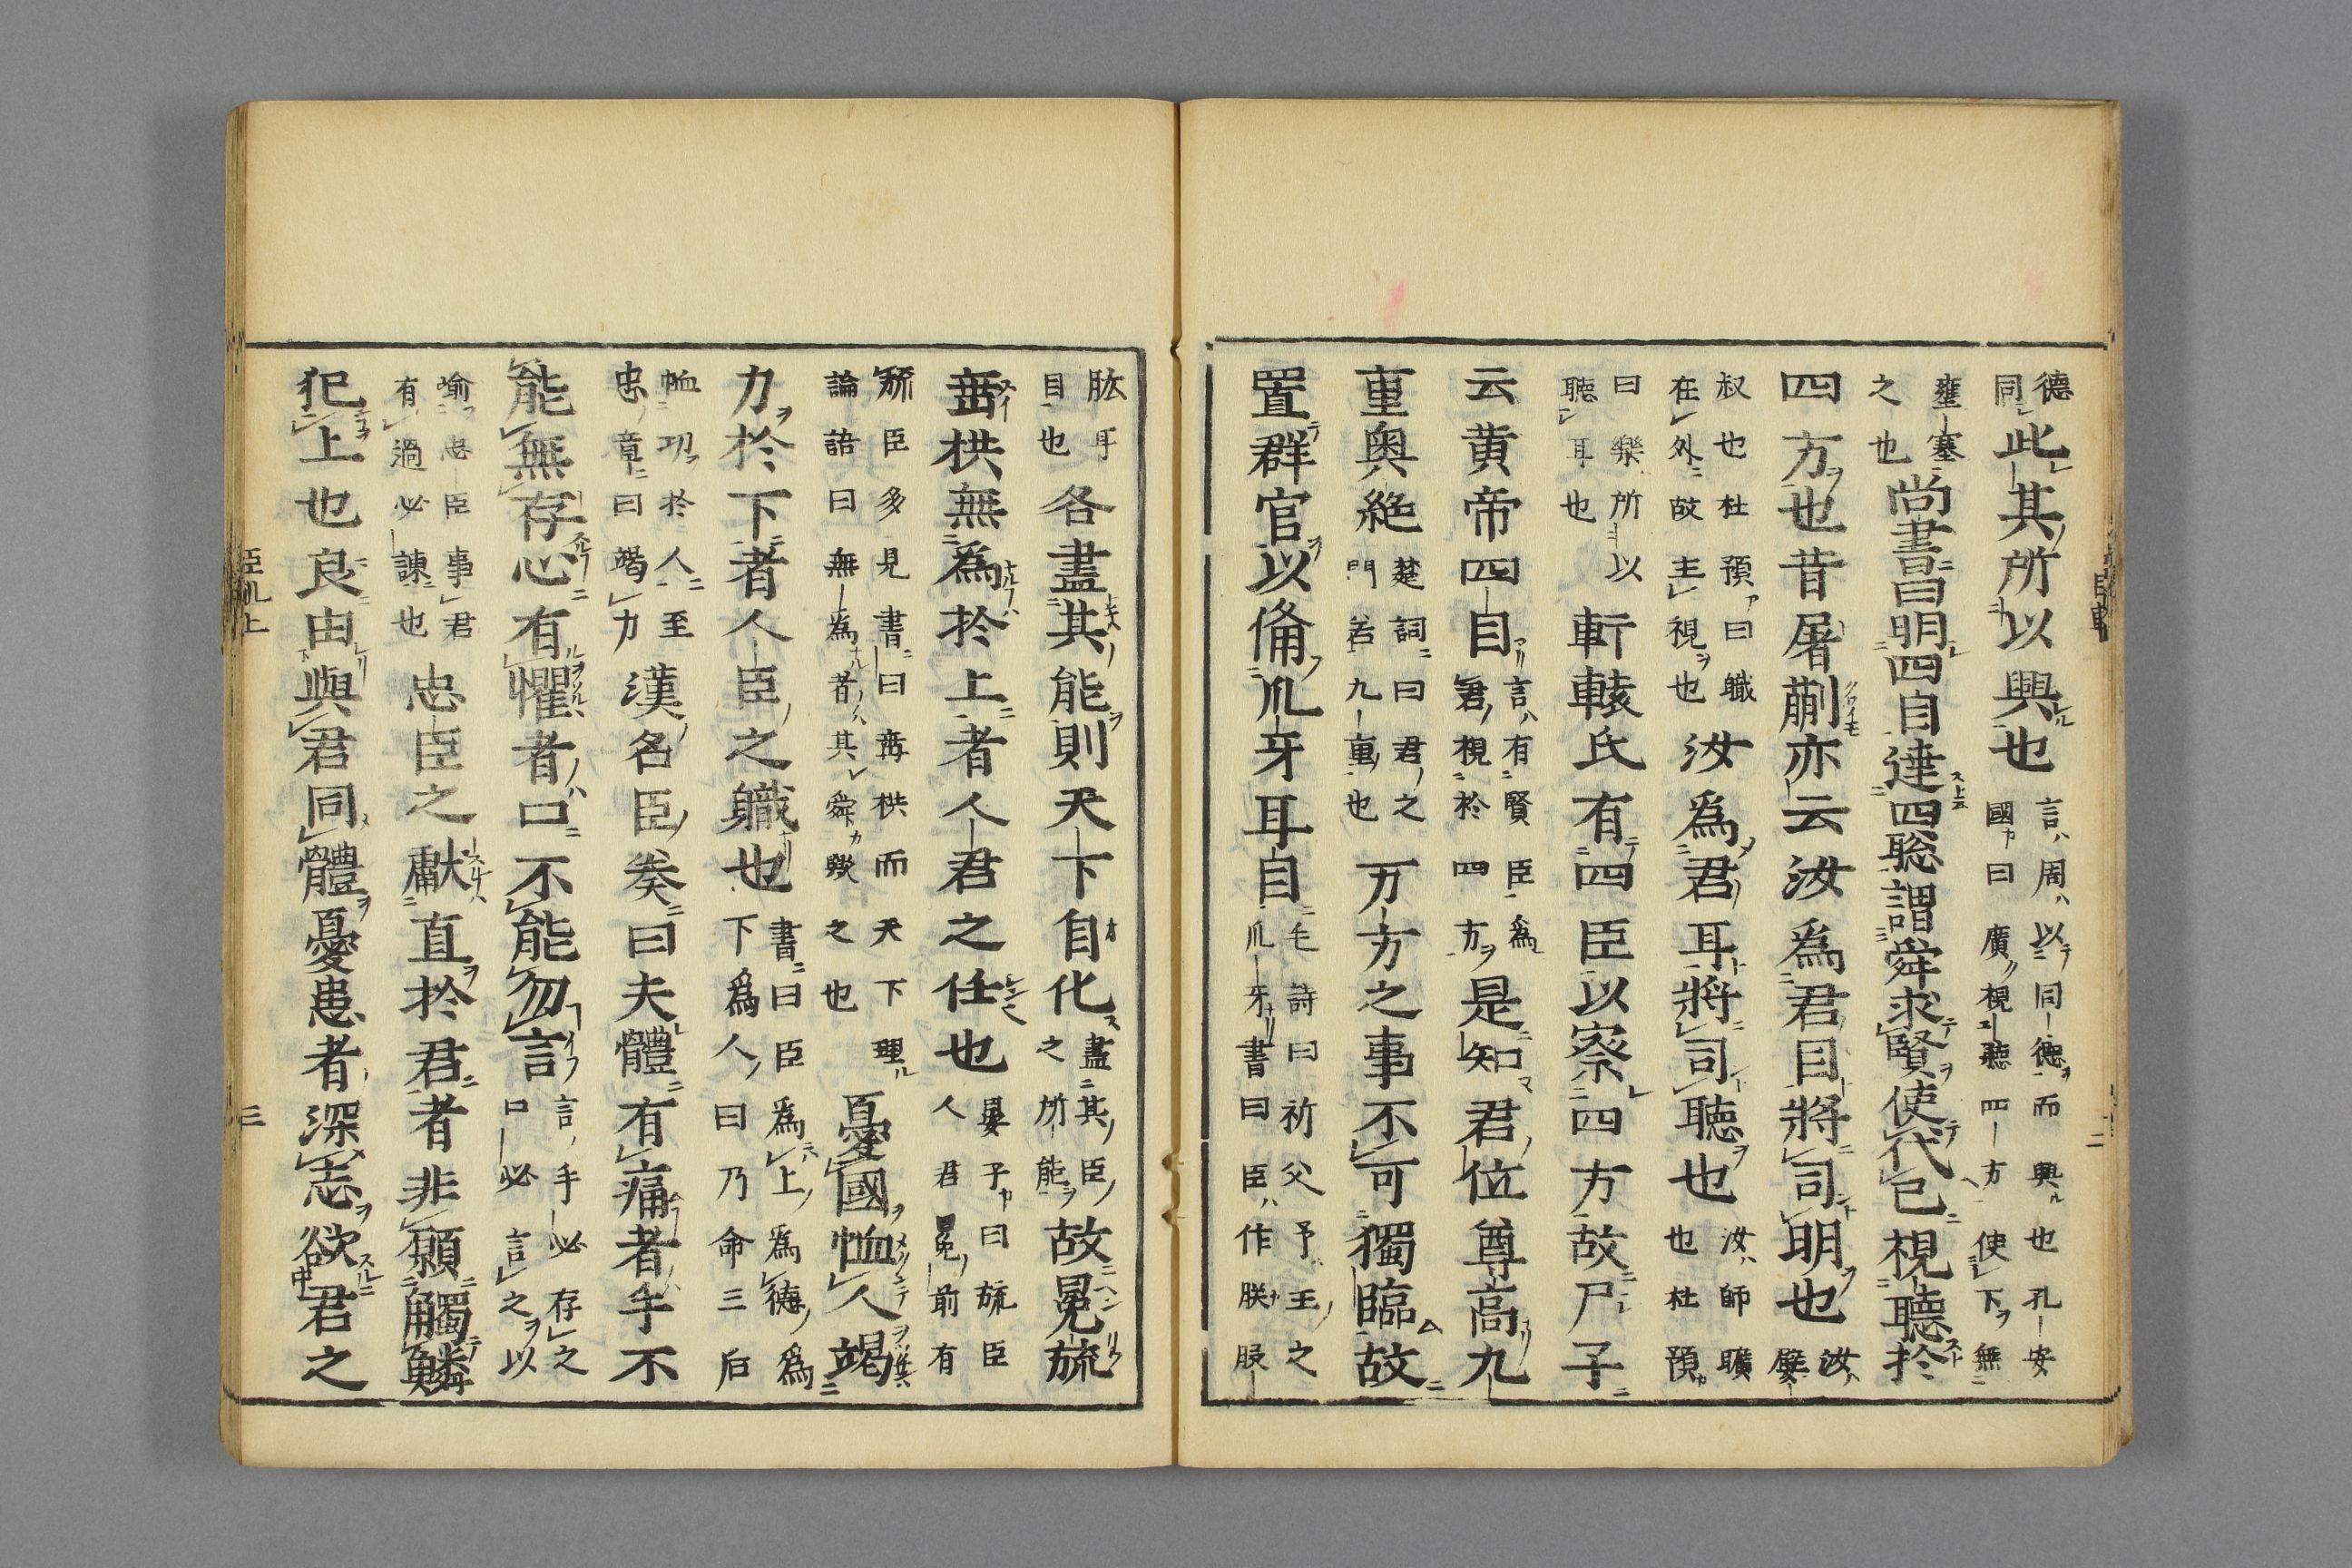 德同此其所以興也言周以同德而興也孔安國曰廣視聽四方使下無
壅塞之也尚書曰明四目達四聡謂舜求賢使代己視聽於
四方也昔屠蒯亦云汝爲君目將司明也汝嬖
叔也杜預曰職在外故主視也汝爲君耳將司聽也汝師曠也杜預
曰樂所以聽耳也軒轅氏有四臣以察四方故尸子
云黄帝四目言有賢臣為君視於四方是知君位尊高九
重奥絶楚詞曰君之門若九重也万方之事不可獨臨故
置群官以俻爪牙耳目毛詩曰祈父予王之爪牙書曰臣作朕股
二
肱耳目也各盡其能則天下自化盡其臣之所能故冕旒
垂拱無為於上者人君之任也晏子曰旒臣人君冕前有
旒臣多見書曰垂拱而天下理論語曰無為者其舜歟之也憂國恤人竭
力於下者人臣之職也書曰臣爲上爲德爲下爲人人曰乃命三后
恤功於人至忠章曰竭力漢名臣奏曰夫體有痛者手不
能無存心有懼者口不能勿言言手必存之口必言之以
喻忠臣事君有過必諫也忠臣之獻直於君者非願觸鱗
犯上也良由與君同體憂患者深志欲君之
臣軌上 三